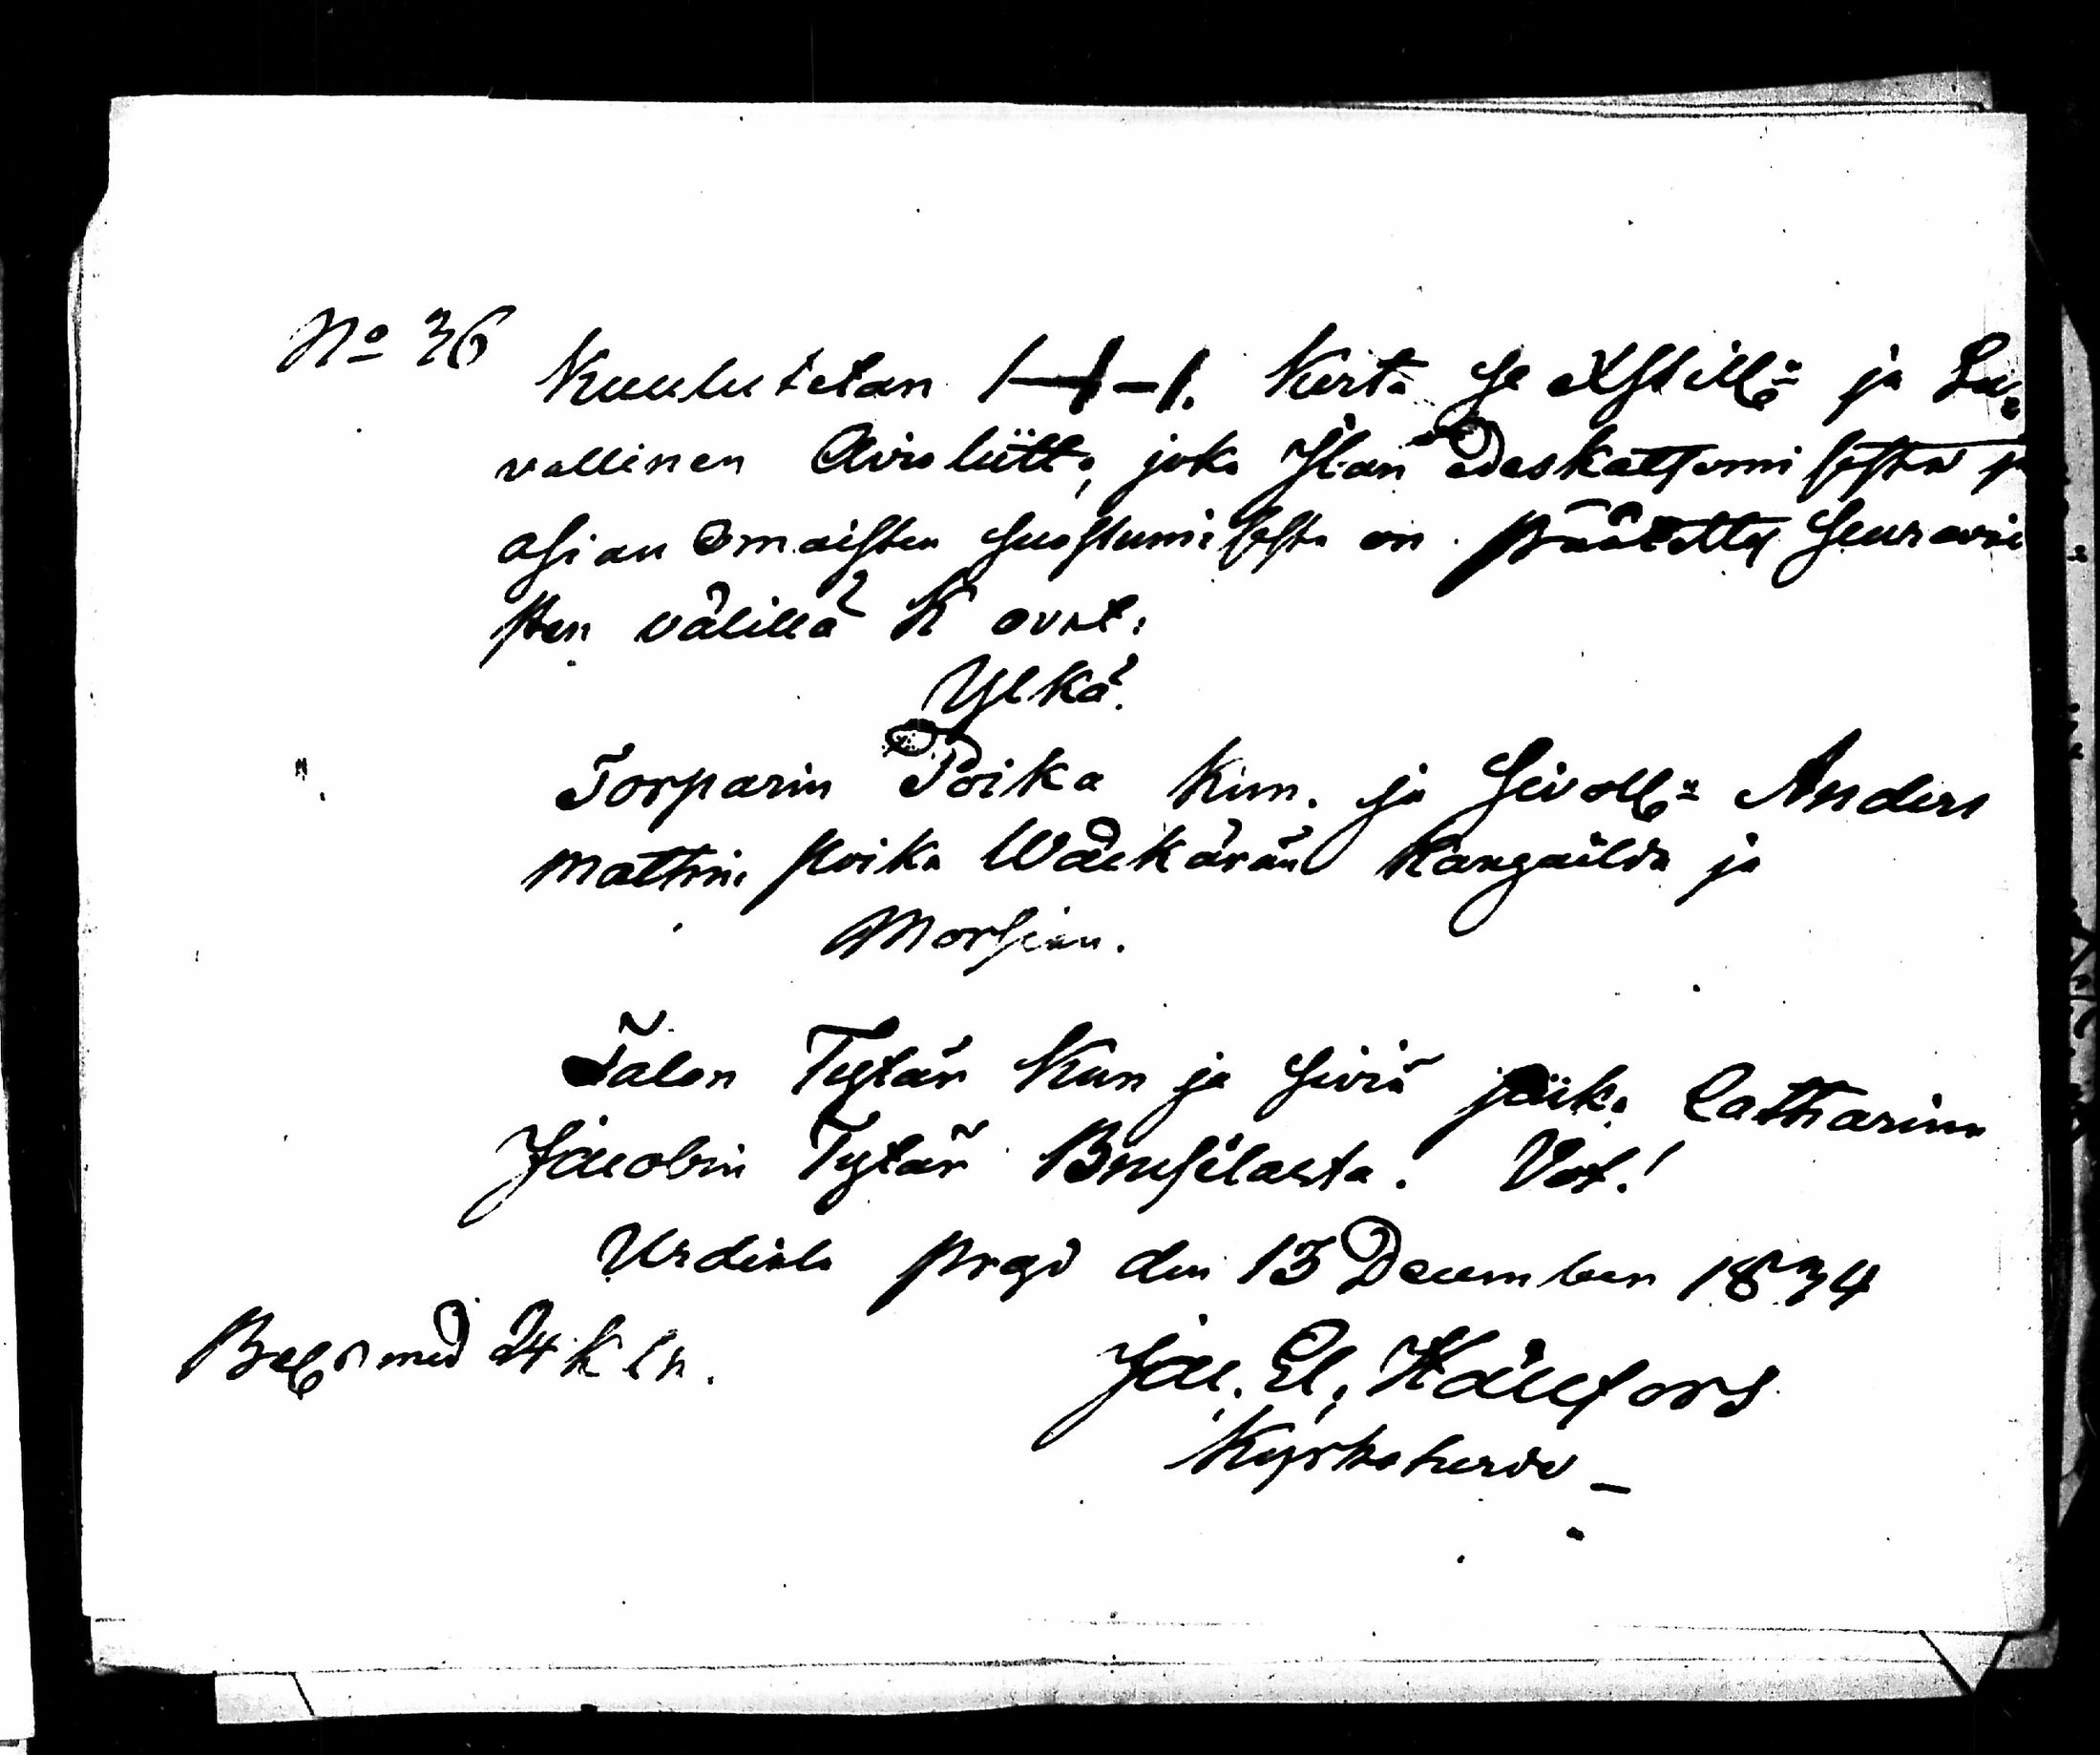 No 36
Kuulutetan 1-1-1. Kerta se Xstill:n ja Lu-
vallinen Aviolütto, joka Ylän Edeskatsomisesta ja
asian Omaisten suostumisesta on päätetty seuravai
sten välillä K ovat.
Ylkä.
Torparin Poika Kun. ja Sivoll:n Anders
Mattin poika Wäekärän Kangailda ja
Morsian.
Talon Tytär Kun ja Siviä pijka Catharina
Jacobin Tytär Brusilasta. Vot!
Urdiala prgd den 13 December 1834
med 24 k
Jac. El. Källfors
Kyrkoherde